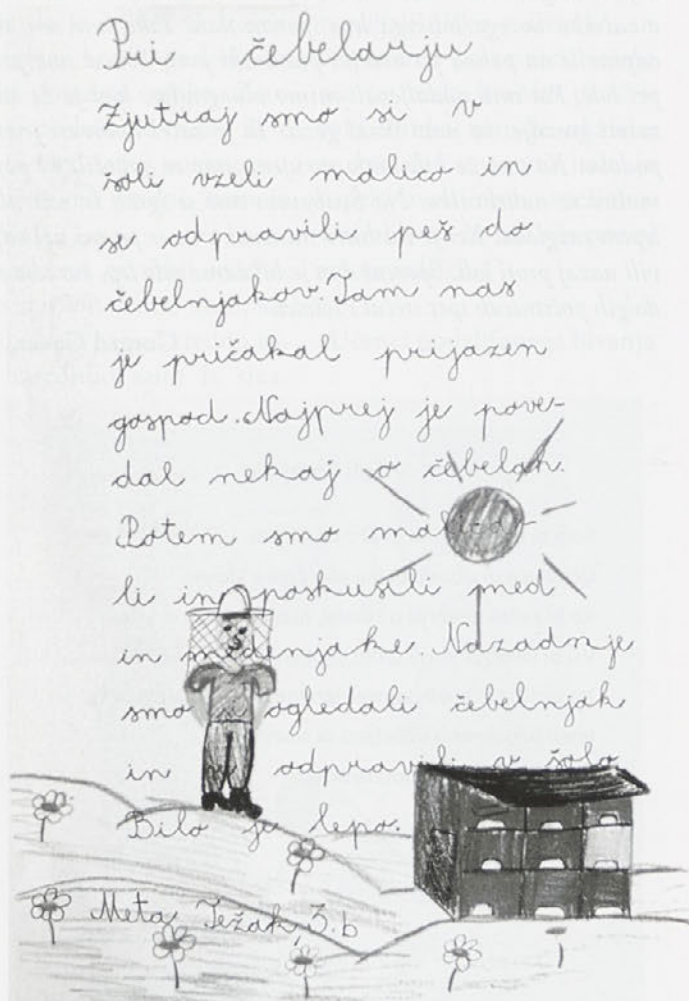 Pri čebelarju
Zjutraj smo si v
šoli vzeli malico in
se odpravili peš do
čebelnjakov. Tam nas
je pričakal prijazen
gospod. Najprej je pove-
dal nekaj o čebelah.
Potem smo malica-
li in poskusili med
in medenjake. Nazadnje
smo si ogledali čebelnjak
in odpravili v šolo.
Bilo je lepo.
Meta Težak, 3. b